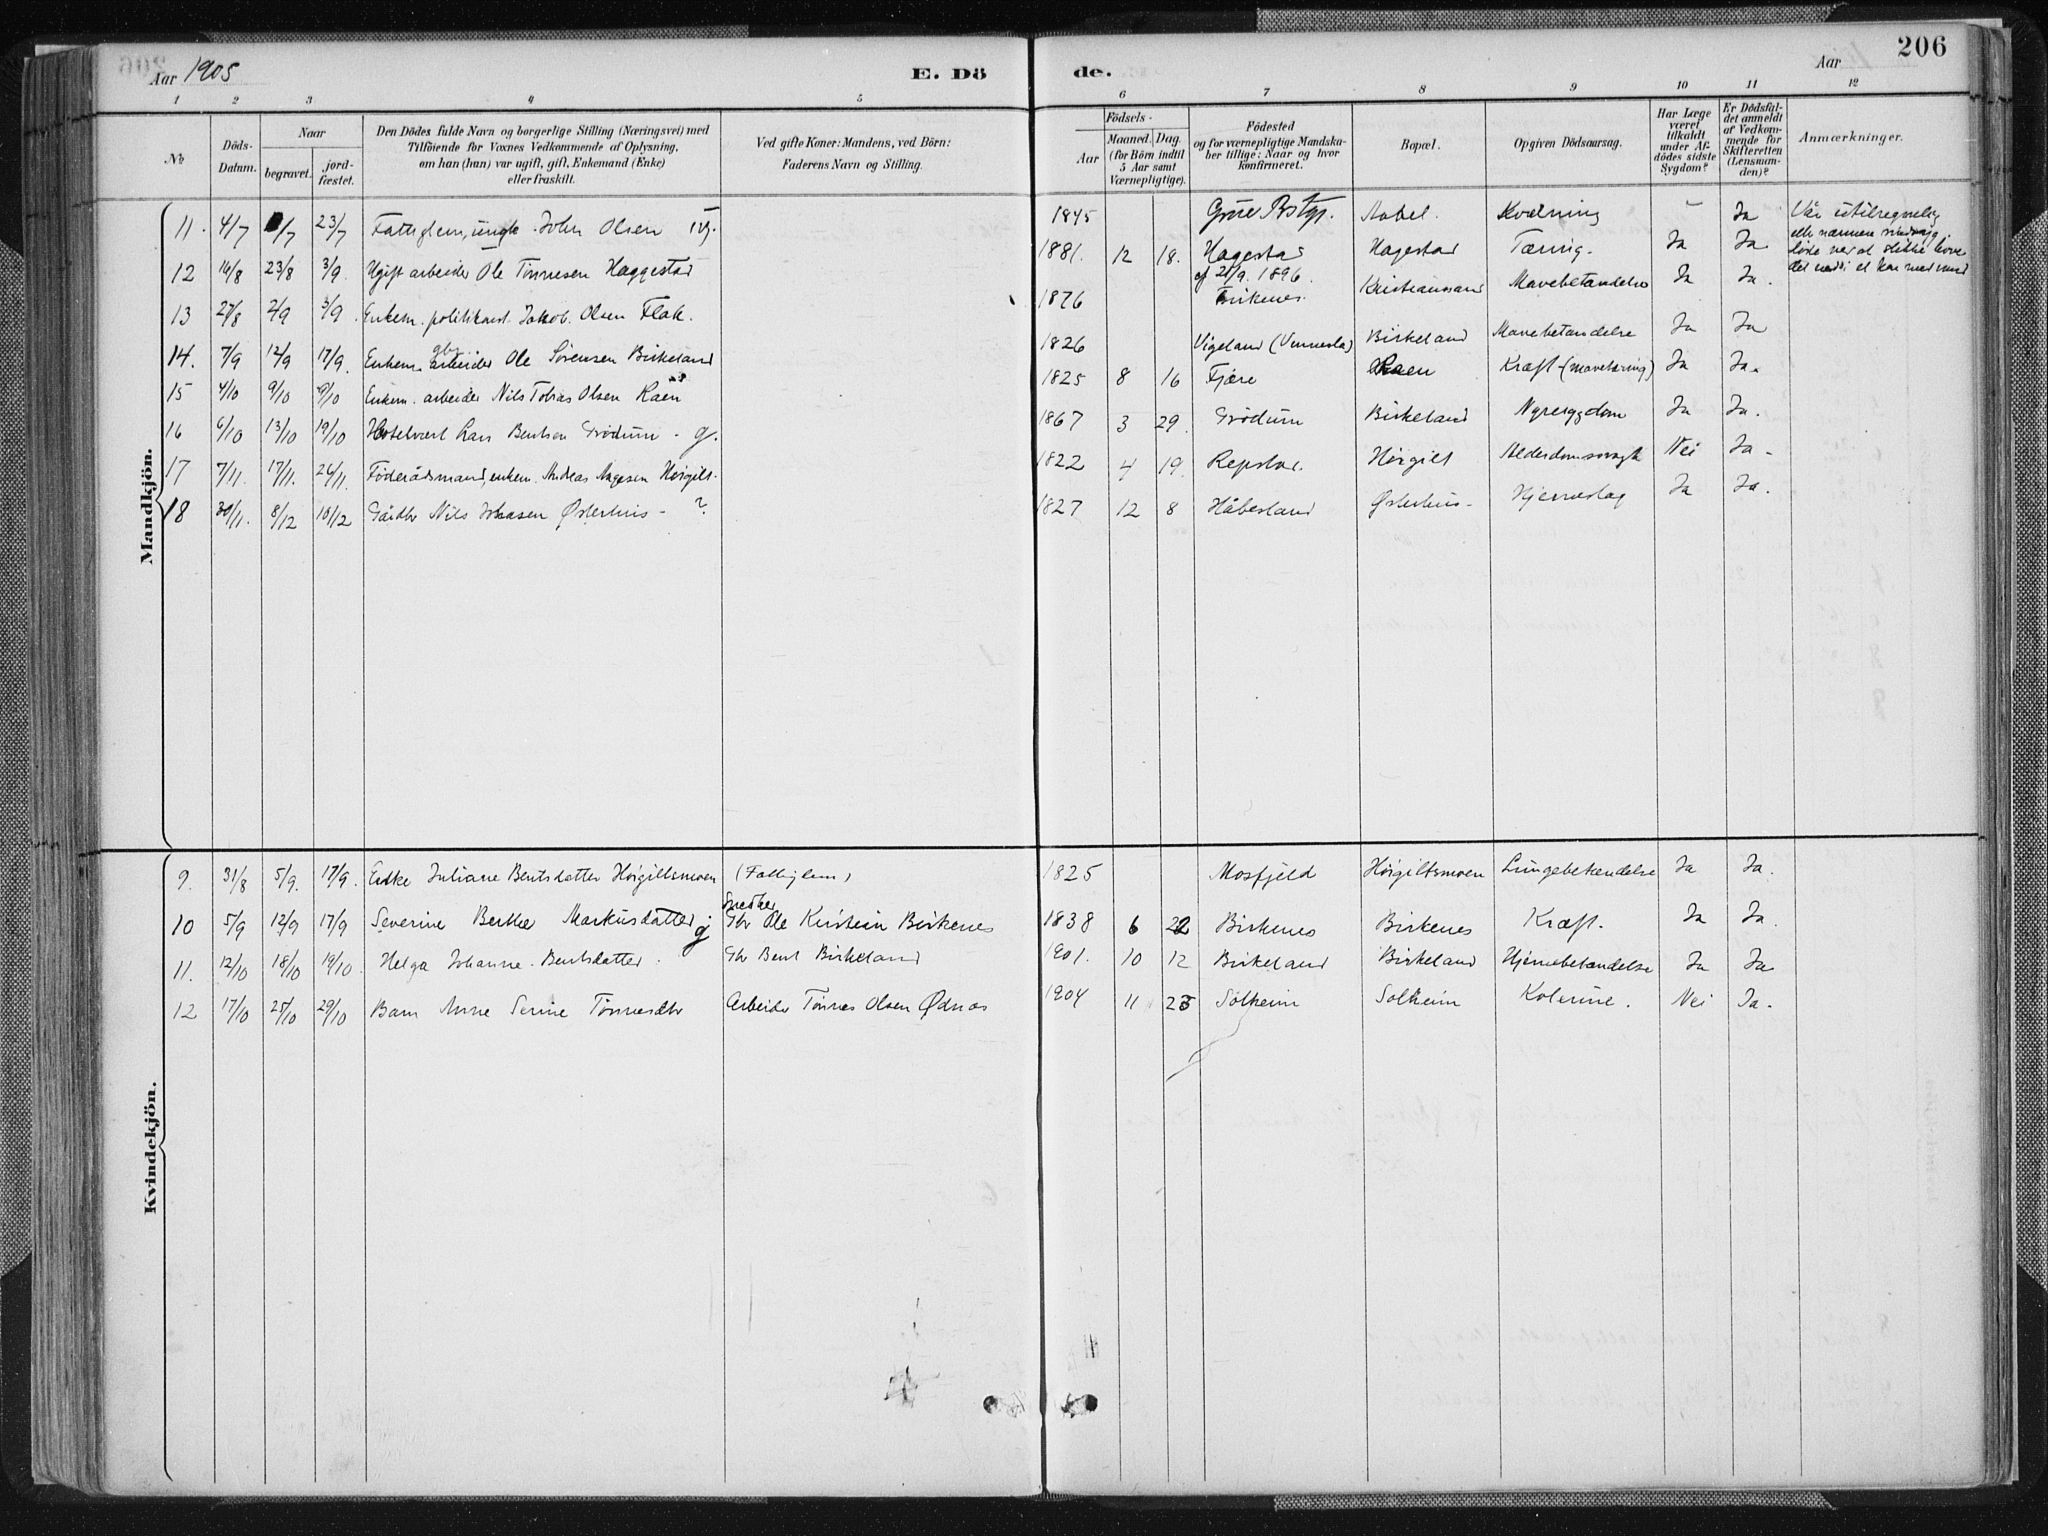 206
Aar 1905
E. Dö
de.
Aar
1 2 3 4 5 6 7 8 9 10 11 12
No
Döds-Datum.
Naar
begravet.
jord-fæstet.
Den Dödes fulde Navn og borgerlige Stilling (Næringsvei) med
Tilföiende for Voxnes Vedkommende af Oplysning,
om han (hun) var ugift, gift, Enkemand (Enke)
eller fraskilt.
Ved gifte Koner: Mandens, ved Börn:
Faderens Navn og Stilling.
Födsels-
Aar
Maaned. Dag.
(for Börn indtil
5 Aar samt
Værnepligtige).
Födested
og for værnepligtige Mandska-
ber tillige: Naar og hvor
konfirmeret.
Bopæl.
Opgiven Dödsaarsag.
Har Læge
været
tilkaldt
under Af-
dödes sidste
Sygdom?
Er Dödsfal-
det anmeldt
af Vedkom-
mende for
Skifteretten
(Lensman-
den)?
Anmærkninger.
Mandkjön.
11. 4/7 /7 23/7 John Olsen 1845 Aabel. Kvælning - Ja Var utilregnelig
12 14/8 23/8 3/9. Ugift arbeider Ole Tønnesen Haggestad 1881. 12 18. Hagestad Hagestad Tæring. Ja Ja.
1896.
13 27/8 2/9 3/9. Enkem. politikonst. Jakob Olsen Flak. 1876 Birkenes. Kristianssand Mavebetændelse Ja Ja.
14. 7/9 12/9 17/9. Enkem. gbr. arbeider Ole Sørensen Birkeland 1826 Vigeland (Vennesla) Birkeland Mavebetændelse Ja Ja
15 4/10 9/10 9/10 Enkem. arbeider Nils Tobias Olsen Raen 1825 8 16 Fjære Raen Kræft (mavetæring) Ja Ja.
16 6/10 13/10 19/10 Hotelvært Lars Bentsen Trødum - g. 1867 3 29. Trødum Birkeland Nyresygdom Ja Ja.
17 7/11. 17/11. 24/11. Føderådsmand, enkem. Andreas Aagesen Høigilt. 1822 4 19. Repstad. Høigilt Alderdomssvagh Nei Ja -
18 30/11. 8/12 10/12 Gårdbr Nils Østerhus - ? 1827 12 8 Håbesland Østerhus - Hjerneslag Ja Ja.
Kvindekjön.
9. 31/8 5/9. 17/9. Enke Juliane Bentsdatter Høigiltsmoen (Fattiglem) 1825 Mosfjeld Høigiltsmoen Lungebetændelse Ja Ja.
10 5/9 12/9 17/9 Severine Berthe Markusdatter g Snedker Gbr Ole Kristian Birkenes 1838 6 22 Birkenes Birkenes Kræft. Ja Ja.
11. 12/10 18/10 19/10. Helga Johanne Bentsdatter. Gbr Bent Birkeland 1901. 10 12 Birkeland Birkeland Hjernebetændelse Ja Ja
12 17/10 25/10 29/10 Barn Anne Serine Tønnesdtr Arbeider Tønnes Olsen Ødnas 1904 11 Solheim Solheim Kolerine. Nei Ja.